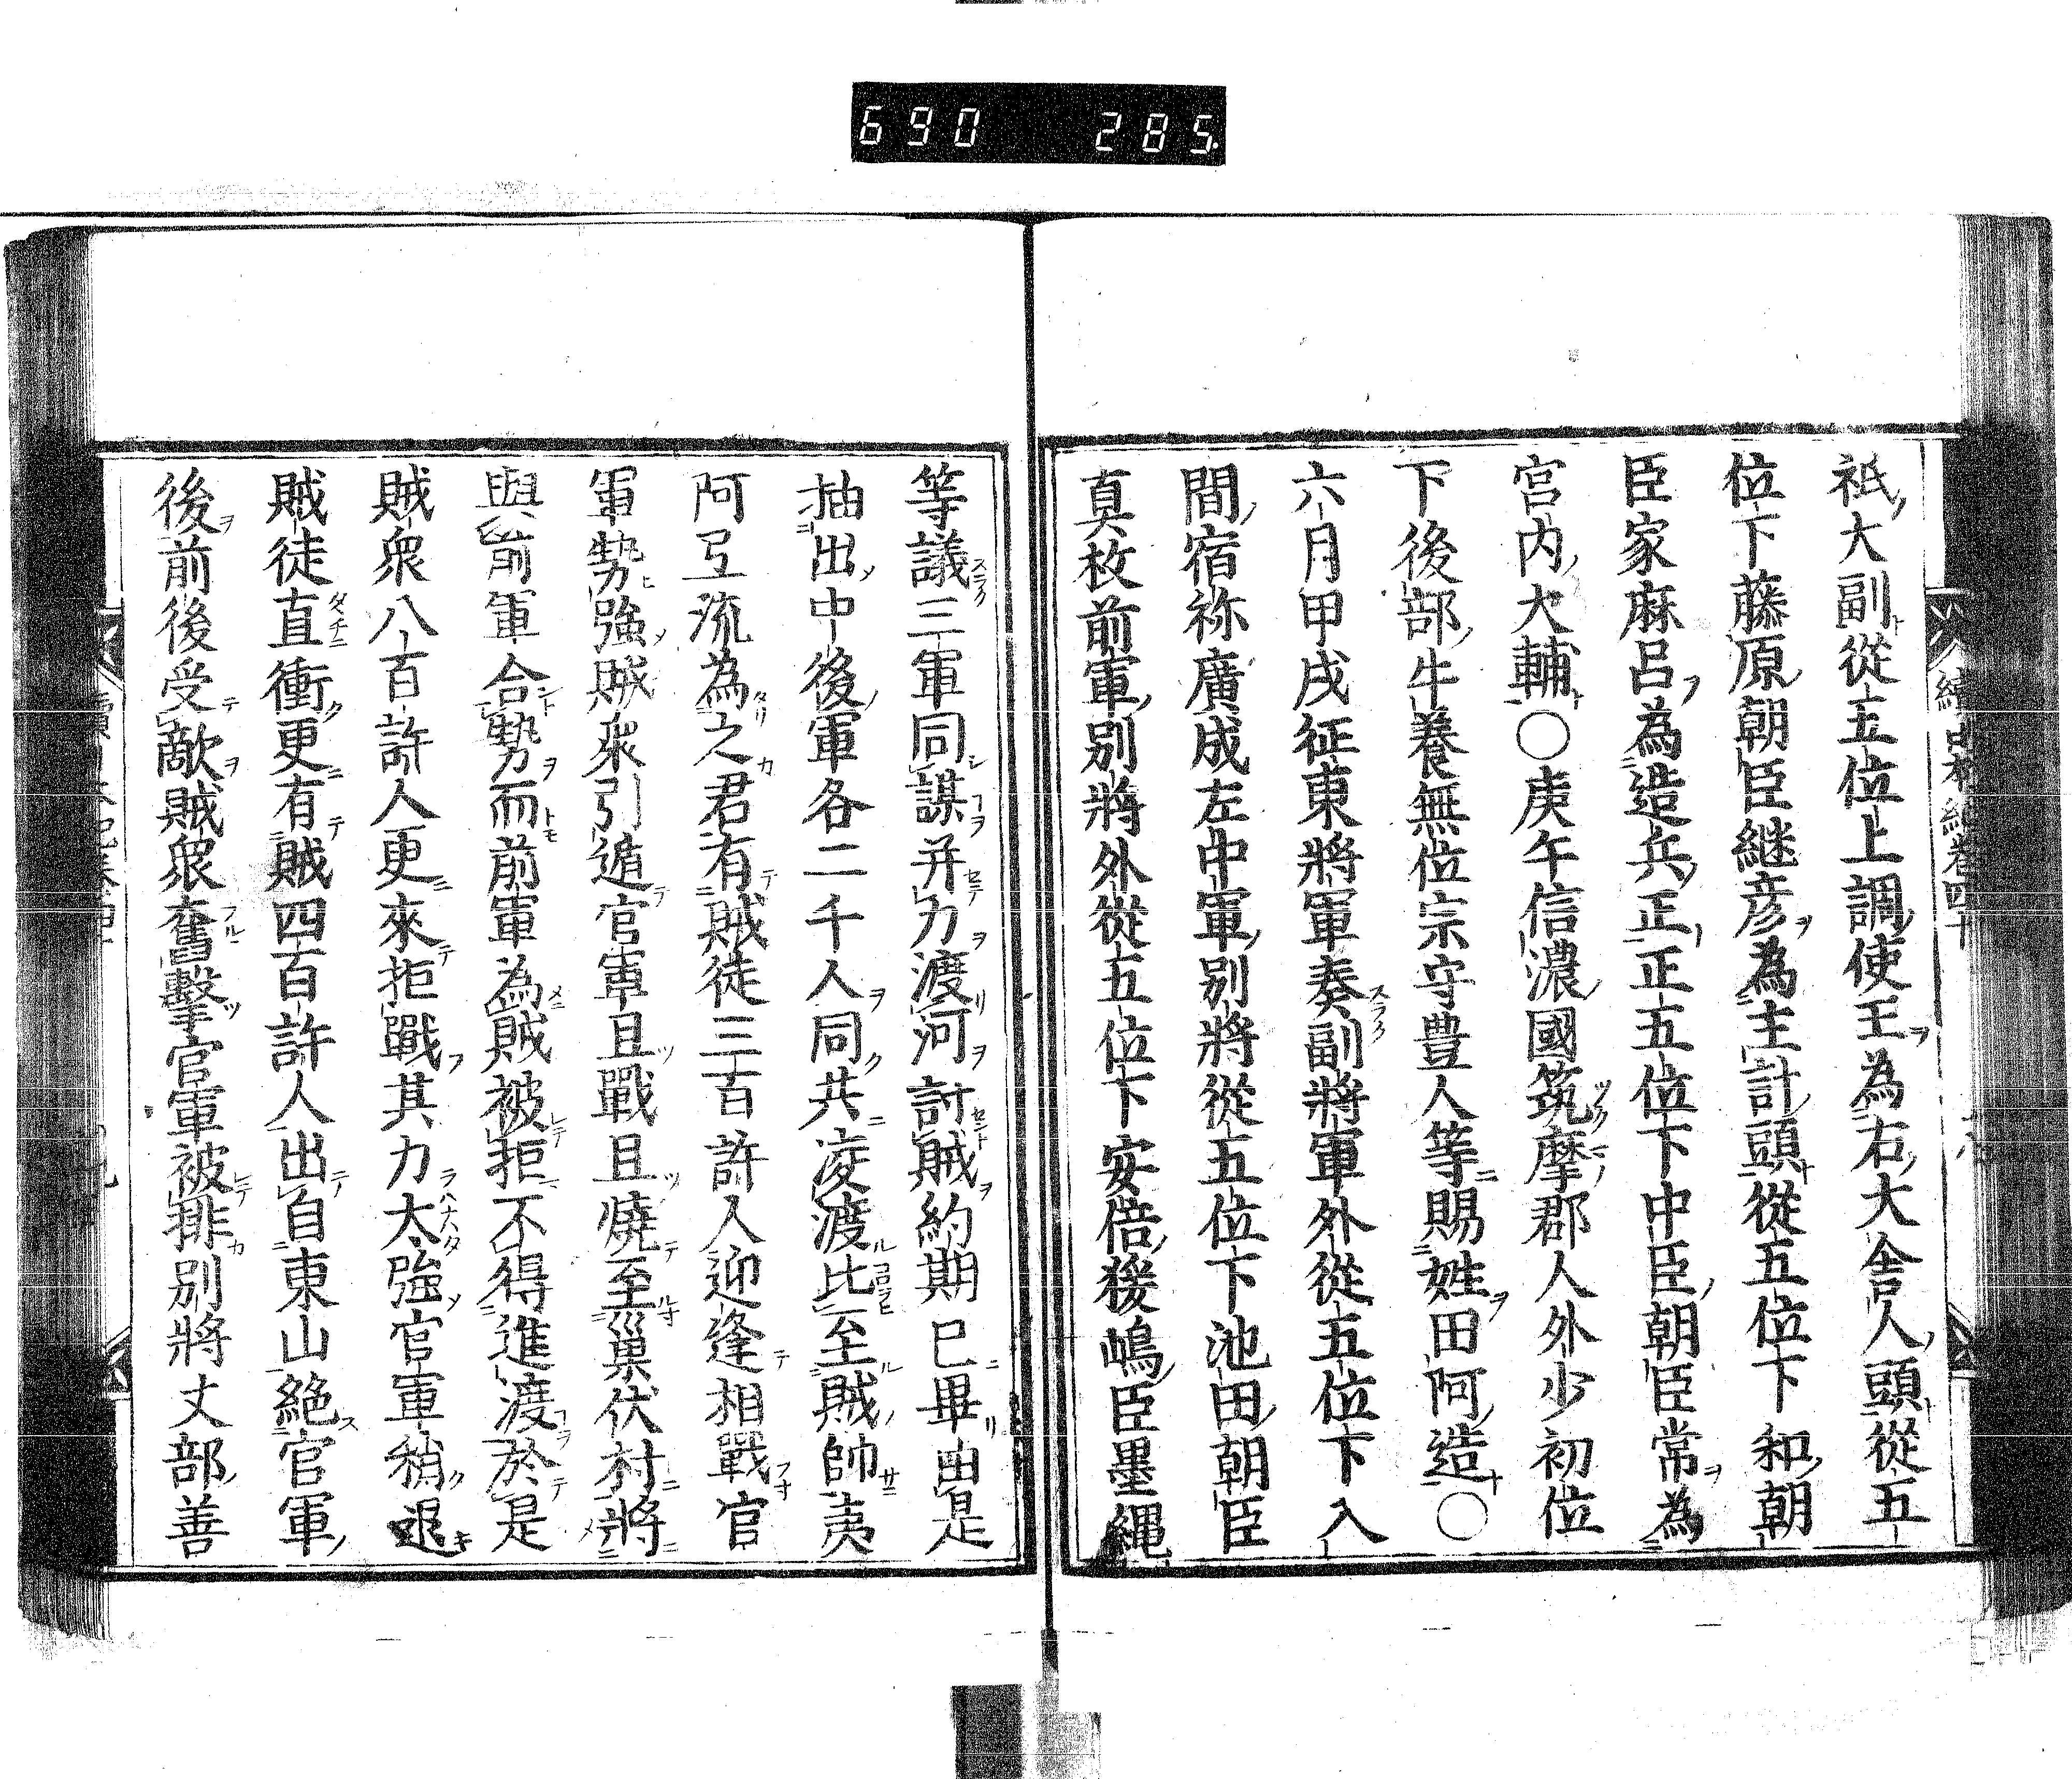 690 285.
祗大副從五位上調使王為右大舎人頭從五
位下藤原朝臣継彦為主計頭從五位下和朝
臣家麻呂為造兵正正五位下中臣朝臣常為
宮内大輔〇庚午信濃國筑摩郡人外少初位
下後部牛養無位宗守豊人等賜姓田阿造〇
六月甲戌征東將軍奏副將軍外從五位下入
間宿祢廣成左中軍別將從五位下池田朝臣
真枚前軍別將外從五位下安倍猨嶋臣墨縄
等議三軍同謀并力渡河討賊約期已畢由是
抽出中後軍各二千人同共凌渡比至賊帥夷
阿弖流為之君有賊徒三百許人迎逢相戰官
軍勢強賊衆引遁官軍且戰且燒至巢伏村將
與前軍合勢而前軍為賊被拒不得進渡於是
賊衆八百許人更來拒戰其力太強官軍稍退
賊徒直衝更有賊四百許人出自東山絶官軍
後前後受敵賊衆奮擊官軍被排別將丈部善